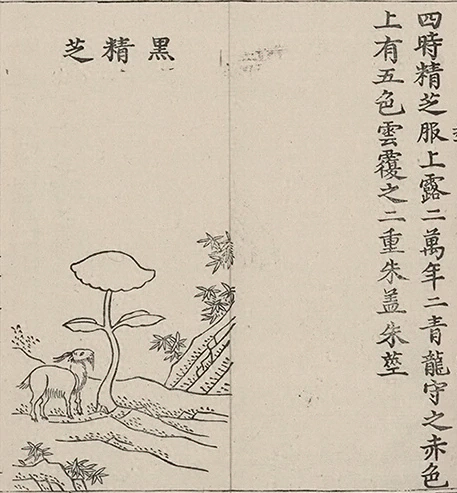 四時精芝服上露二萬年二青龍守之赤色
上有五色雲覆之二重朱盖朱莖
黑精芝